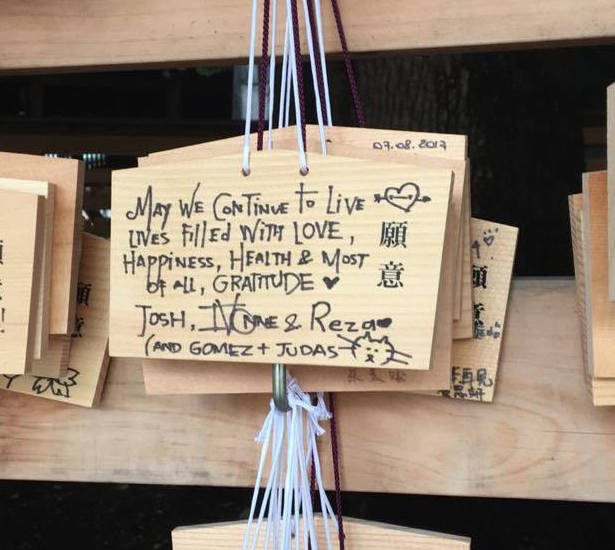 07.08.2017
MAY WE CONTINUE to LIVE
LIVES FillED WITH LOVE,
HAPPINESS, HEALTH & MOST
OF ALL, GRATITUDE ♥
願意
JOSH, IVONNE & Reza♥
(AND GOMEZ + JUDAS
願意